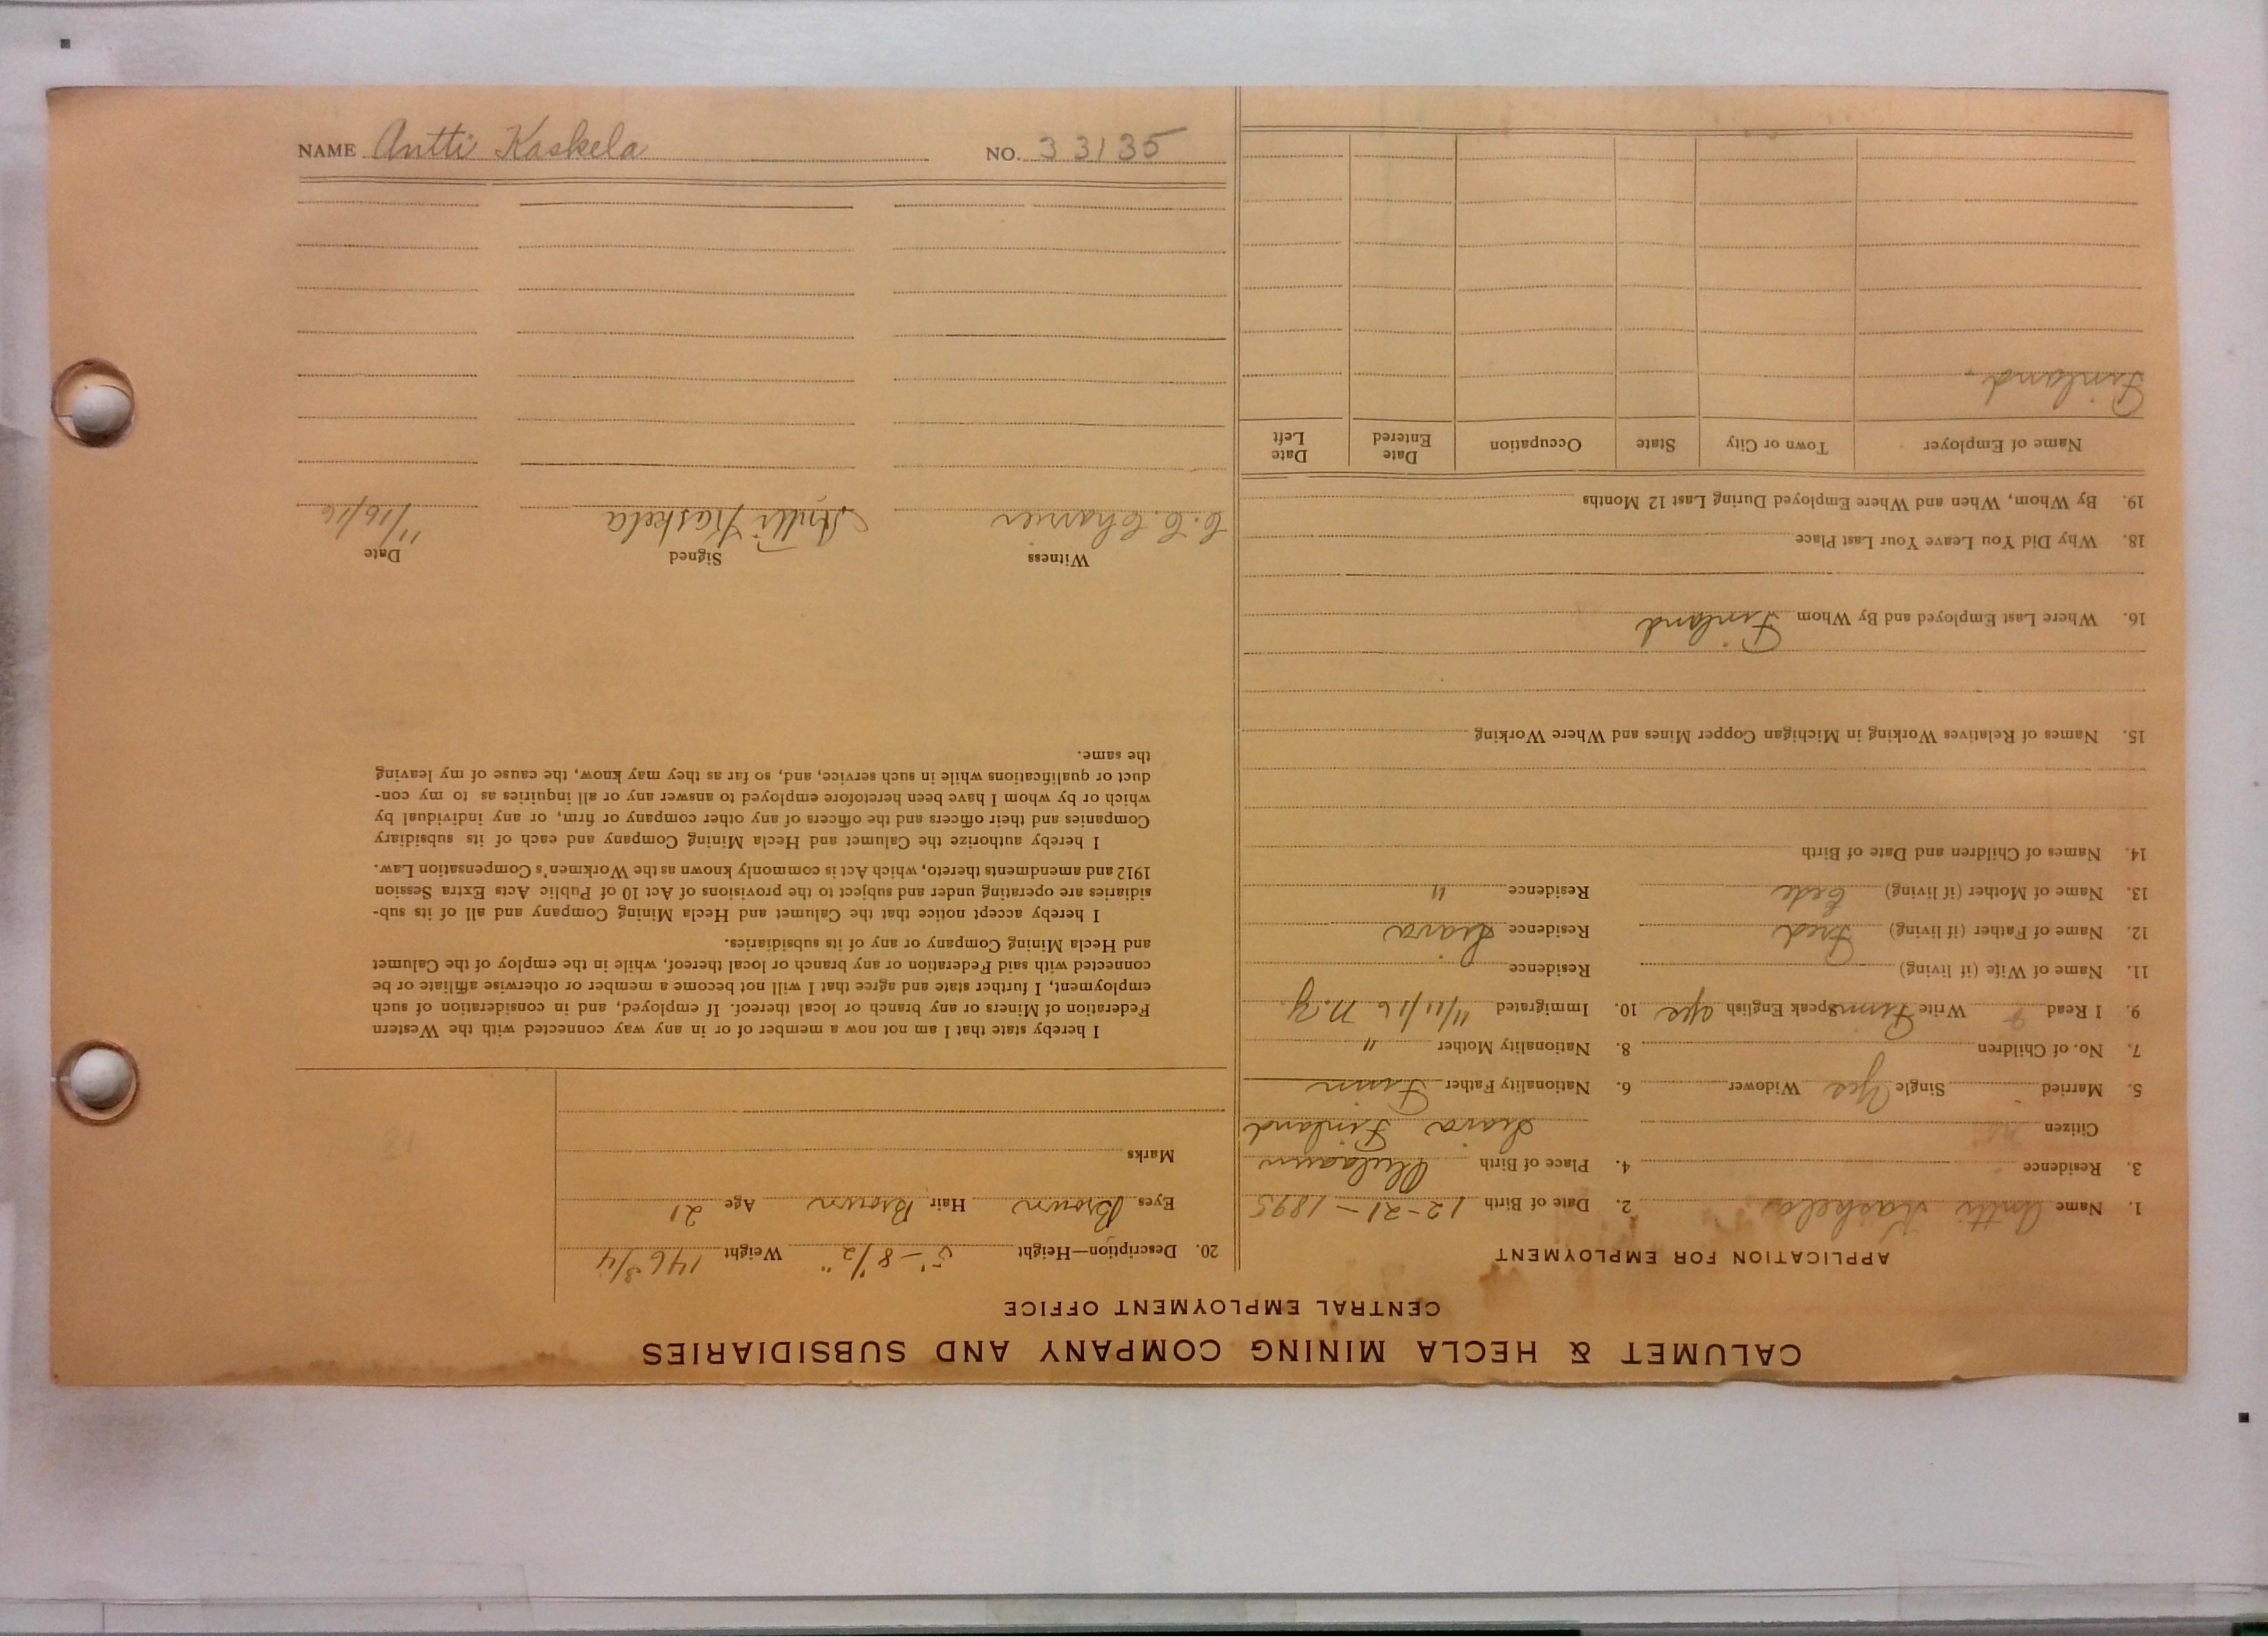 NAME Antti Kaskela NO. 33135
CALUMET & HECLA MINING COMPANY AND SUBSIDIARIES
CENTRAL EMPLOYMENT OFFICE
APPLICATION FOR EMPLOYMENT
1. Name Antti Kaskela 2. Date of Birth 12-21-1895
3. Residence 4. Place of Birth
Citizen Finland
5. Married Single Yes Widower 6. Nationality Father Finn
7. No. of Children 8. Nationality Mother "
9. I Read Write Finn Speak English 10. Immigrated 11/11/16 N.Y.
11. Name of Wife (if living) Residence
12. Name of Father (if living) Fred Residence
13. Name of Mother (if living) Residence "
14. Names of Children and Date of Birth
15. Names of Relatives Working in Michigan Copper Mines and Where Working
16. Where Last Employed and By Whom Finland
18. Why Did You Leave Your Last Place
19. By Whom, When and Where Employed During Last 12 Months
Name of Employer Town or City State Occupation Date Entered Date Left
Finland
20. Description—Height 5'-8 1/2" Weight 146 3/4
Eyes Brown Hair Brown Age 21
Marks
I hereby state that I am not now a member of or in any way connected with the Western
Federation of Miners or any branch or local thereof. If employed, and in consideration of such
employment, I further state and agree that I will not become a member or otherwise affiliate or be
connected with said Federation or any branch or local thereof, while in the employ of the Calumet
and Hecla Mining Company or any of its subsidiaries.
I hereby accept notice that the Calumet and Hecla Mining Company and all of its sub-
sidiaries are operating under and subject to the provisions of Act 10 of Public Acts Extra Session
1912 and amendments thereto, which Act is commonly known as the Workmen's Compensation Law.
I hereby authorize the Calumet and Hecla Mining Company and each of its subsidiary
Companies and their officers and the officers of any other company or firm, or any individual by
which or by whom I have been heretofore employed to answer any or all inquiries as to my con-
duct or qualifications while in such service, and, so far as they may know, the cause of my leaving
the same.
Witness Signed Date
Antti Kaskela 11/16/16